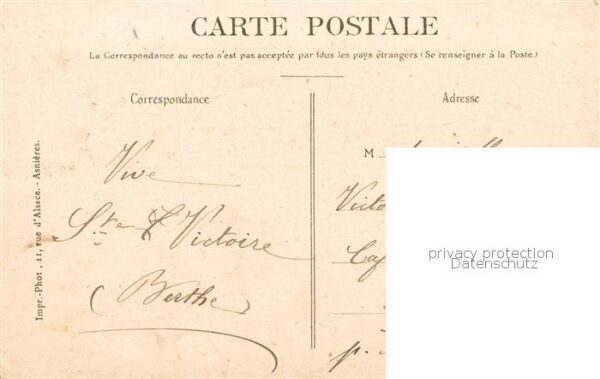 CARTE POSTALE
La Correspondance au recto n'est pas acceptée par tous les pays étrangers (Se renseigner à la Poste)
Correspondance
Vive
Ste Victoire
Berthe
Adresse
M
Victo
Caf
p.
privacy protection
Datenschutz
Impr.-Phot. 11, rue d'Alsace. - Asnières.